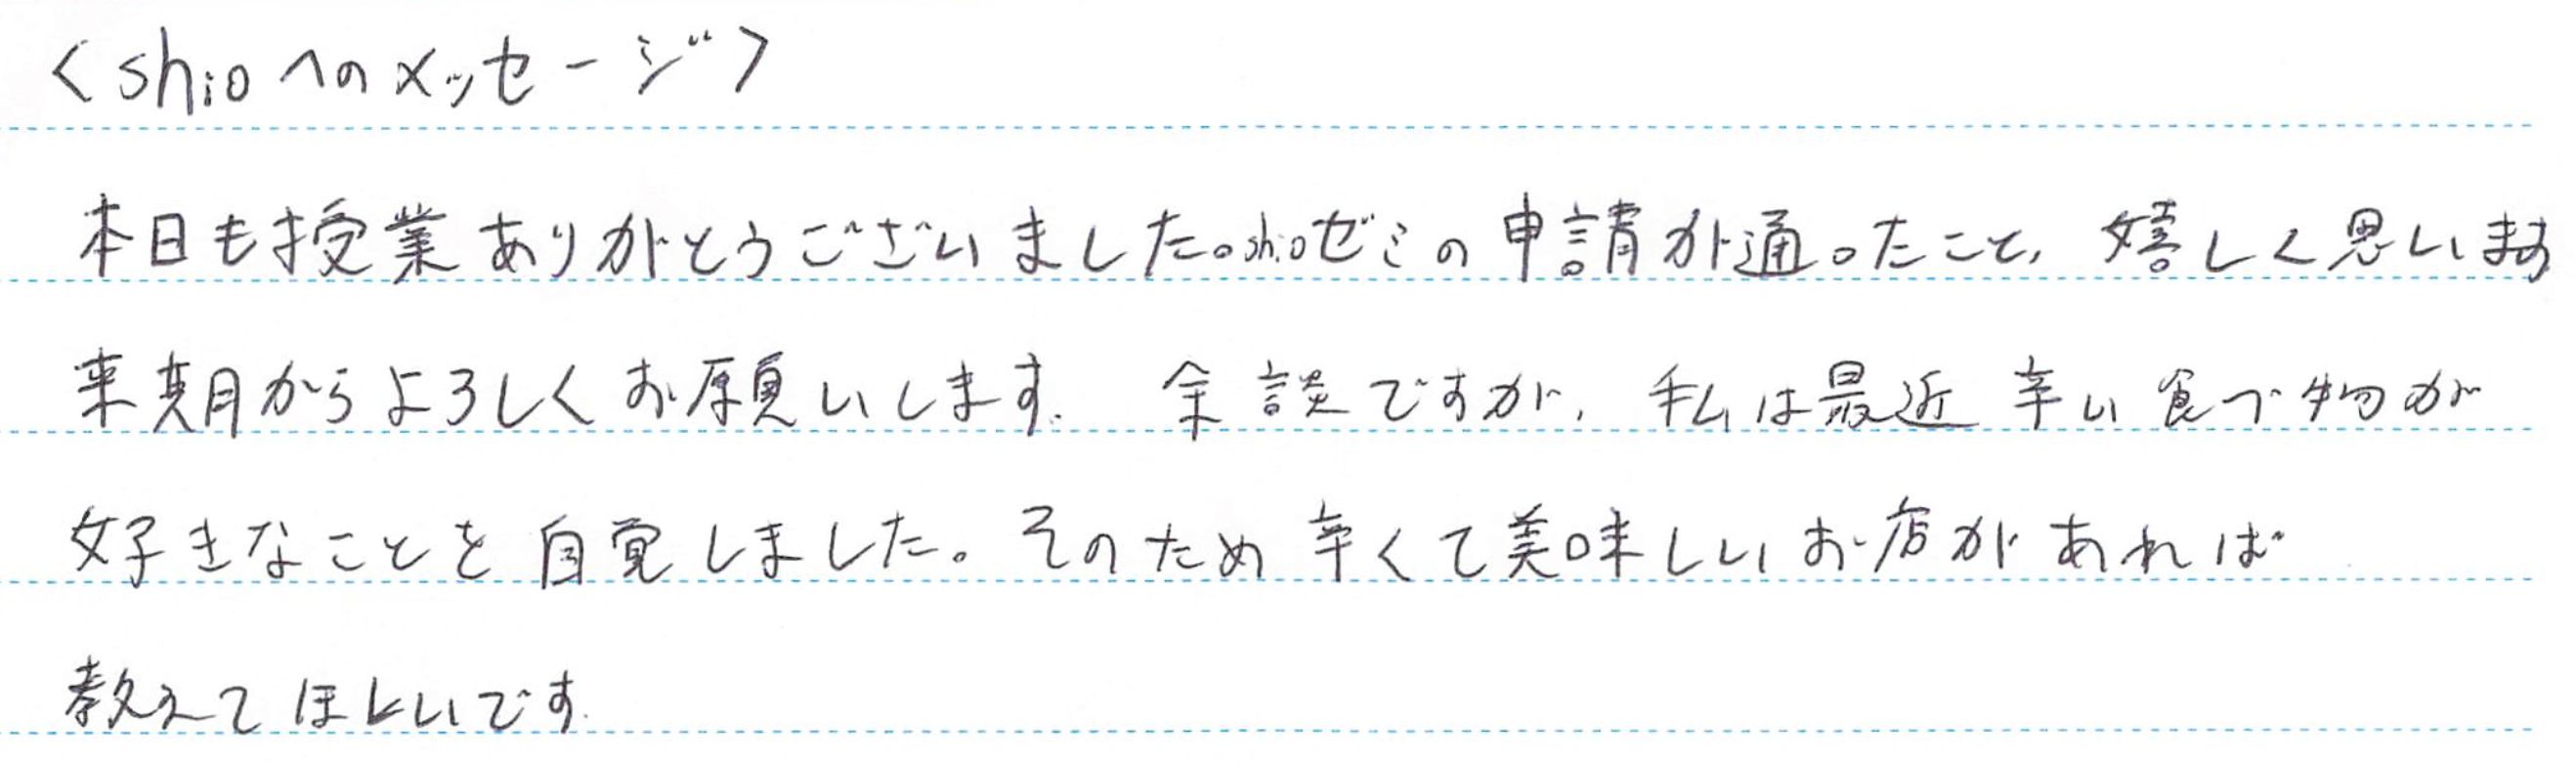 <shioへのメッセージ>
本日も授業ありがとうございました。shioゼミの申請が通ったこと、嬉しく思います
来期からよろしくお願いします。 余談ですが、私は最近辛い食べ物が
好きなことを自覚しました。そのため辛くて美味しいお店があれば
教えてほしいです.